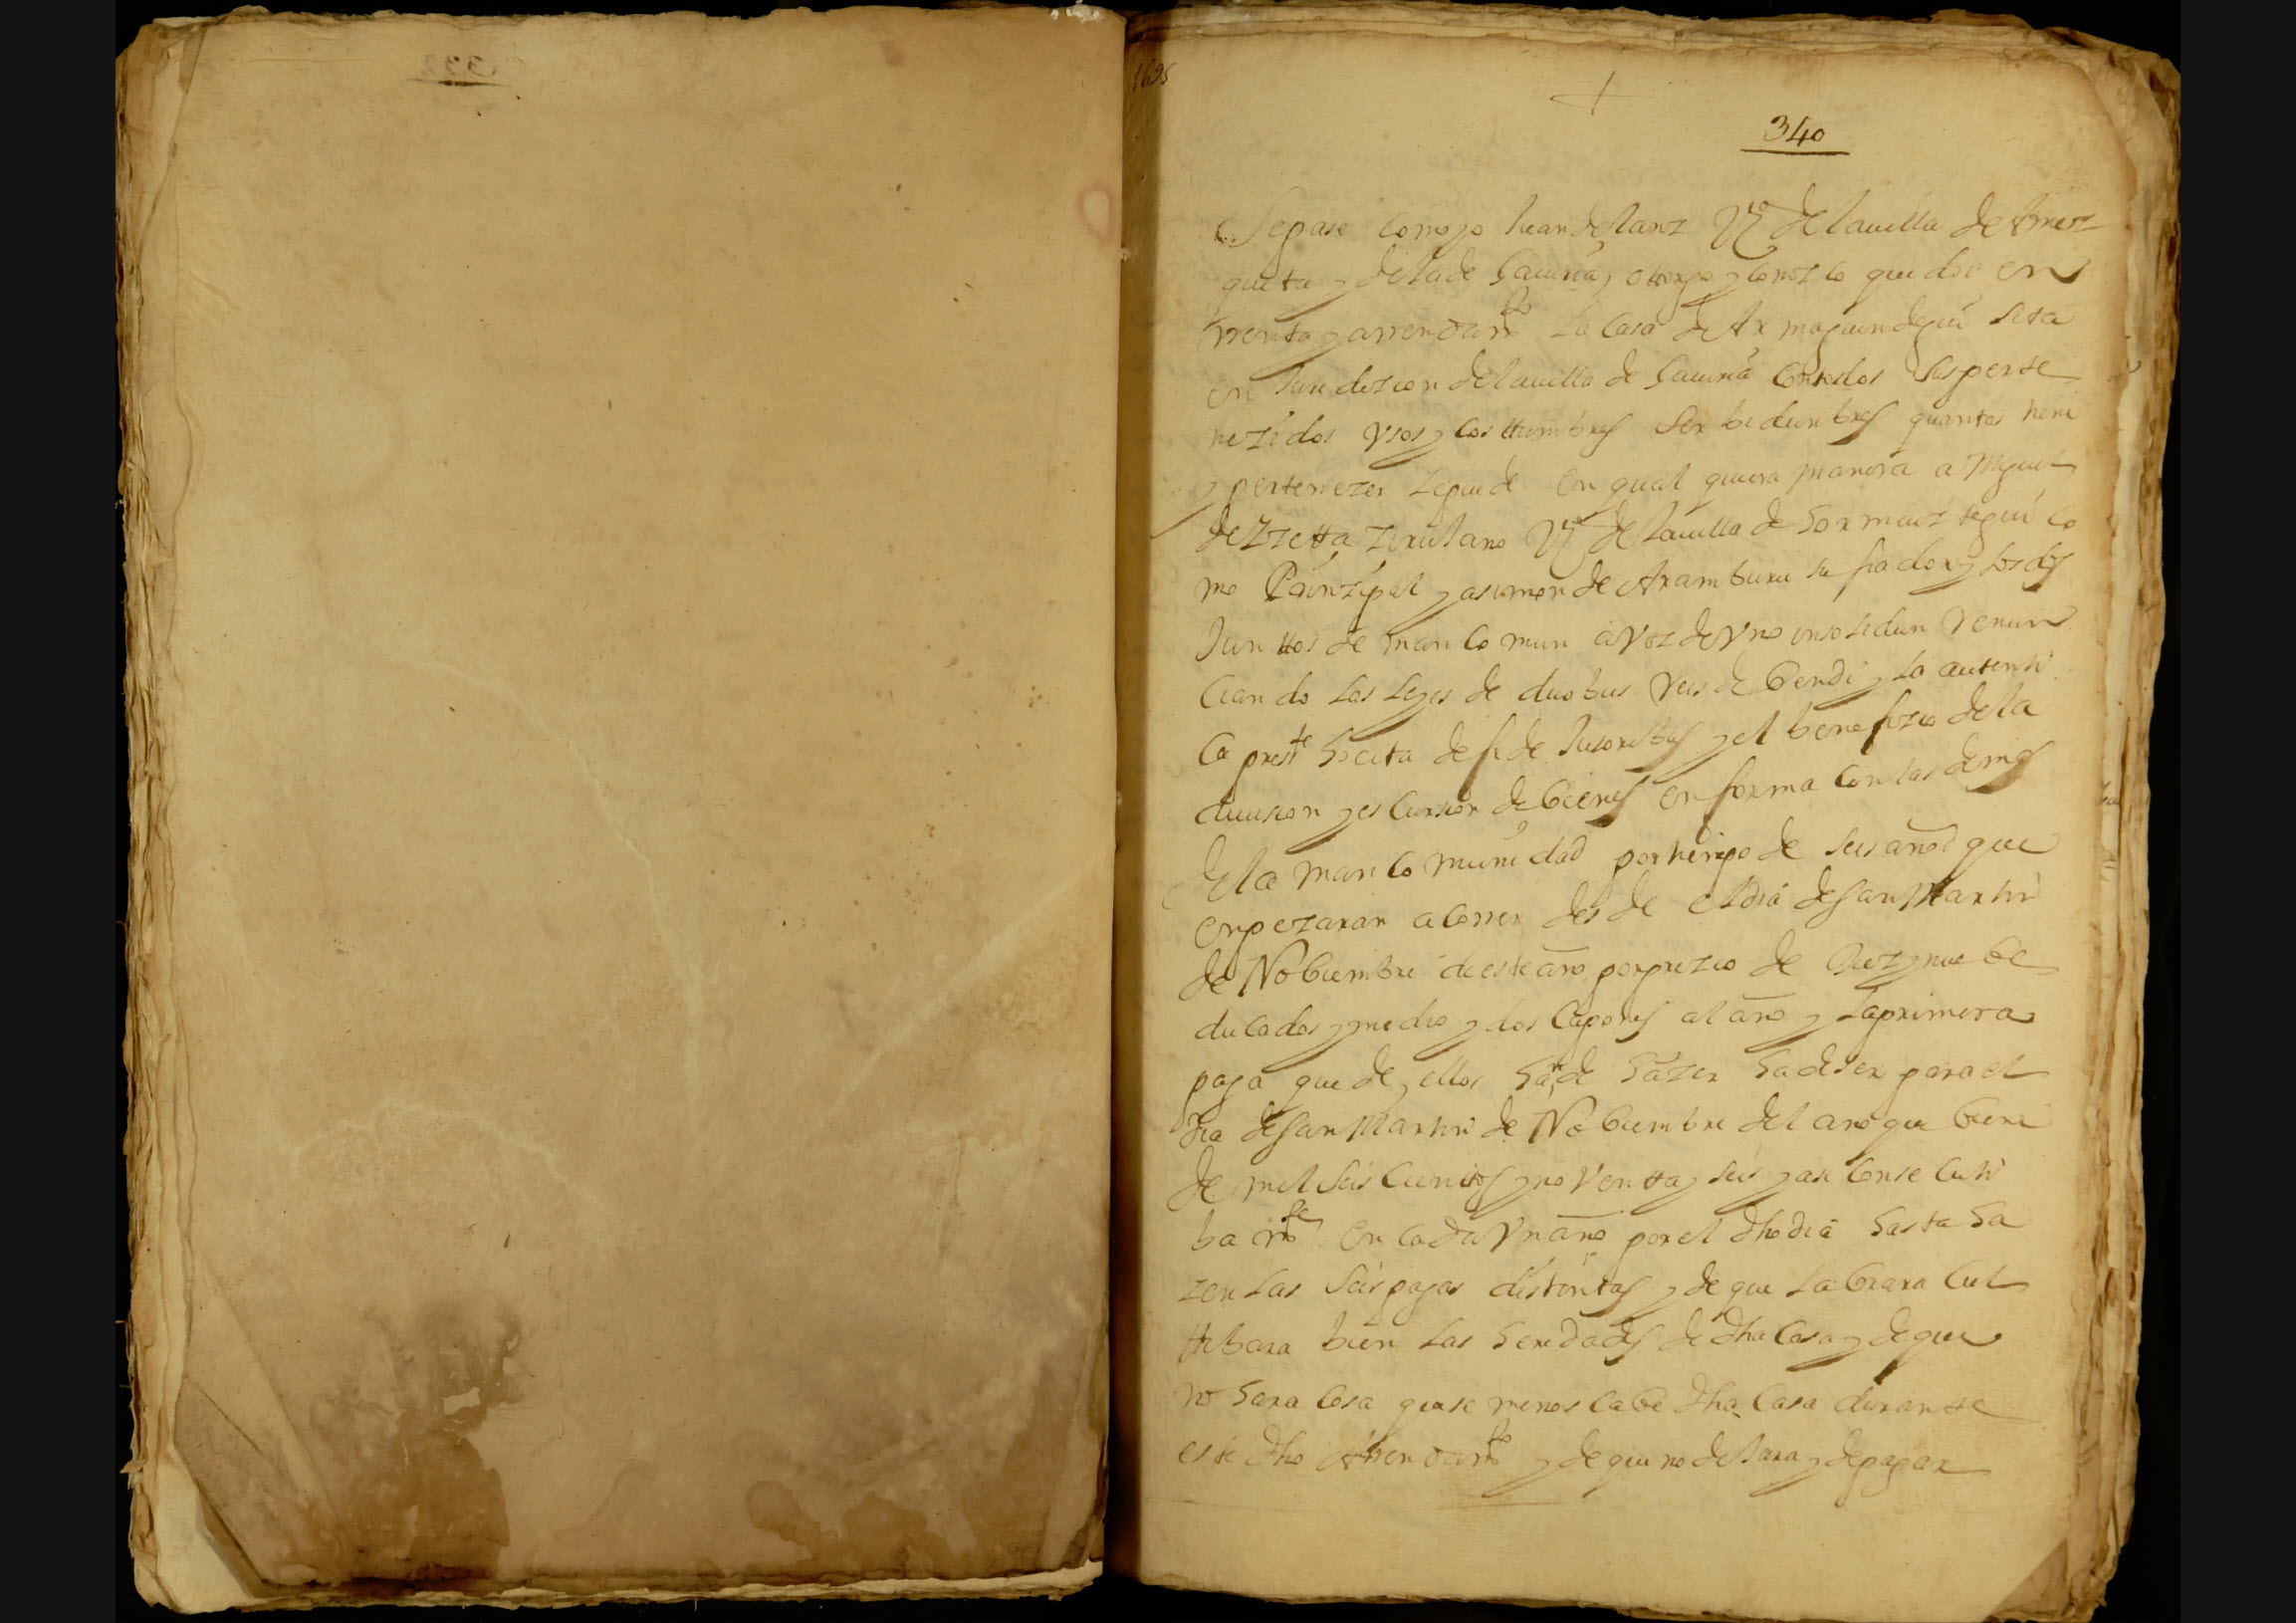 1695
340
Sepase Como yo Juan de lanz Vº de la villa de Amez
queta y de la de Gauiria, ottorgo y conozco que doi en
rrenta y arrendamto La Casa de Ar maguindegui sita
en Juridizion de la villa de Gauiria Con todos sus perte
nezidos vsos y costtumbres Serbidunbres quantas tiene
y pertenezer le puede en qual quiera manera a Miguel
de Yzetta Zirujano Vº de la villa de Hormaiztegui Co
mo Prinzipal y a simon de Aramburu su fiador y los dos
Junttos de man comun a voz de vno insolidun renun
ciando las leyes de duobus reis de bendi y la autenti
ca preste hocita de fide Jusoribus y el benefizio de la
diuision y escursion de bienes en forma con las demas
de la man comunidad por tienpo de seis años que
enpezaran a correr desde el dia de san Martin
de Nobiembre de este año por prezio de Diez y nuebe
ducados y medio y dos Capones al año y la primera
paga que de ellos han de hazer ha de ser para el
dia de san Martin de Nobiembre del año que biene
de mil seis cientos y noventta y seis y asi consecuti
bamte en cada vn año por el dho dia hasta ha
zer las seis pagas distintas y de que labrara cul
ttibara bien las heredades de dha Casa y de que
no hara cosa que se menoscabe dha Casa durante
este dho Arrendamto y de que no dejara de pagar